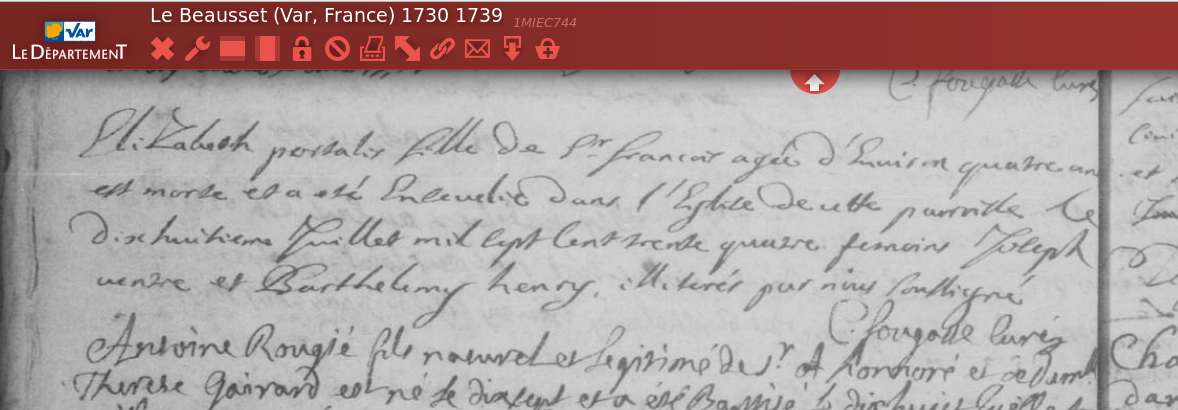 Le Beausset (Var, France) 1730 1739 1MIEC744
VAR
LE DÉPARTEMENT
C. fougasse curé
Elizabeth portalis fille de Sr. francois agée d'Environ quatre an
est morte et a eté Ensevelie dans l'Eglise de cette parroisse le
dixhuitieme Juillet mil sept cent trente quatre temoins Joseph
ventre et Barthelemy henry, illiterés par nous soussigné
C. fougasse curé
Antoine Rougié fils naturel et legitime de Sr. honnoré et de
Therese Gairard est né le dixsept et a été Baptisé le dixhuit